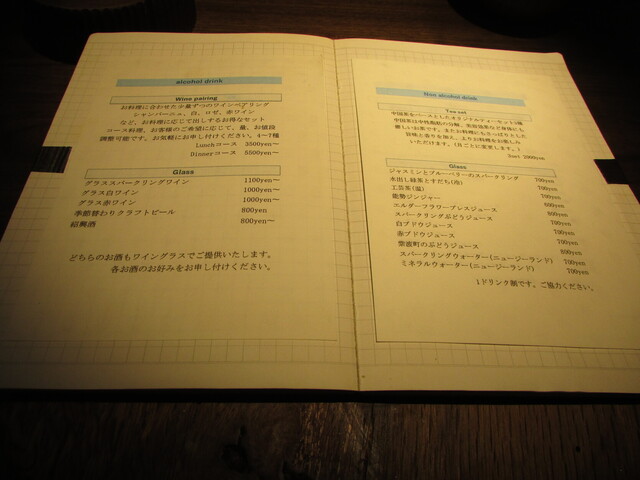 alcohol drink
Wine pairing
お料理に合わせた少量ずつのワインペアリング
シャンパーニュ、白、ロゼ、赤ワイン
など、お料理に応じて出しするお得なセット
コース料理、お客様のご希望に応じて、量、お値段
調整可能です。お気軽にお申し付けください。4~7種
Lunchコース 3500yen~
Dinnerコース 5500yen~
Glass
グラススパークリングワイン 1100yen~
グラス白ワイン 1000yen~
グラス赤ワイン 1000yen~
季節替わりクラフトビール 800yen
紹興酒 800yen~
どちらのお酒もワイングラスでご提供いたします。
各お酒のお好みをお申し付けください。
Non alcohol drink
Tea set
中国茶をベースとしたオリジナルティーセット3種
優しいお茶です。またお料理にもさっぱりとした
旨味と香りを加え、よりお料理をお楽しみ
いただけます。(日ごとに変更します。)
3set 2000yen
Glass
ジャスミンとブルーベリーのスパークリング 700yen
水出し緑茶とすだち(冷) 700yen
工芸茶(温) 700yen
能勢ジンジャー 700yen
エルダーフラワープレスジュース 800yen
スパークリングぶどうジュース 800yen
白ブドウジュース 700yen
赤ブドウジュース 700yen
紫波町のぶどうジュース 700yen
スパークリングウォーター(ニュージーランド) 800yen
ミネラルウォーター(ニュージーランド) 700yen
700yen
1ドリンク制です。ご協力ください。